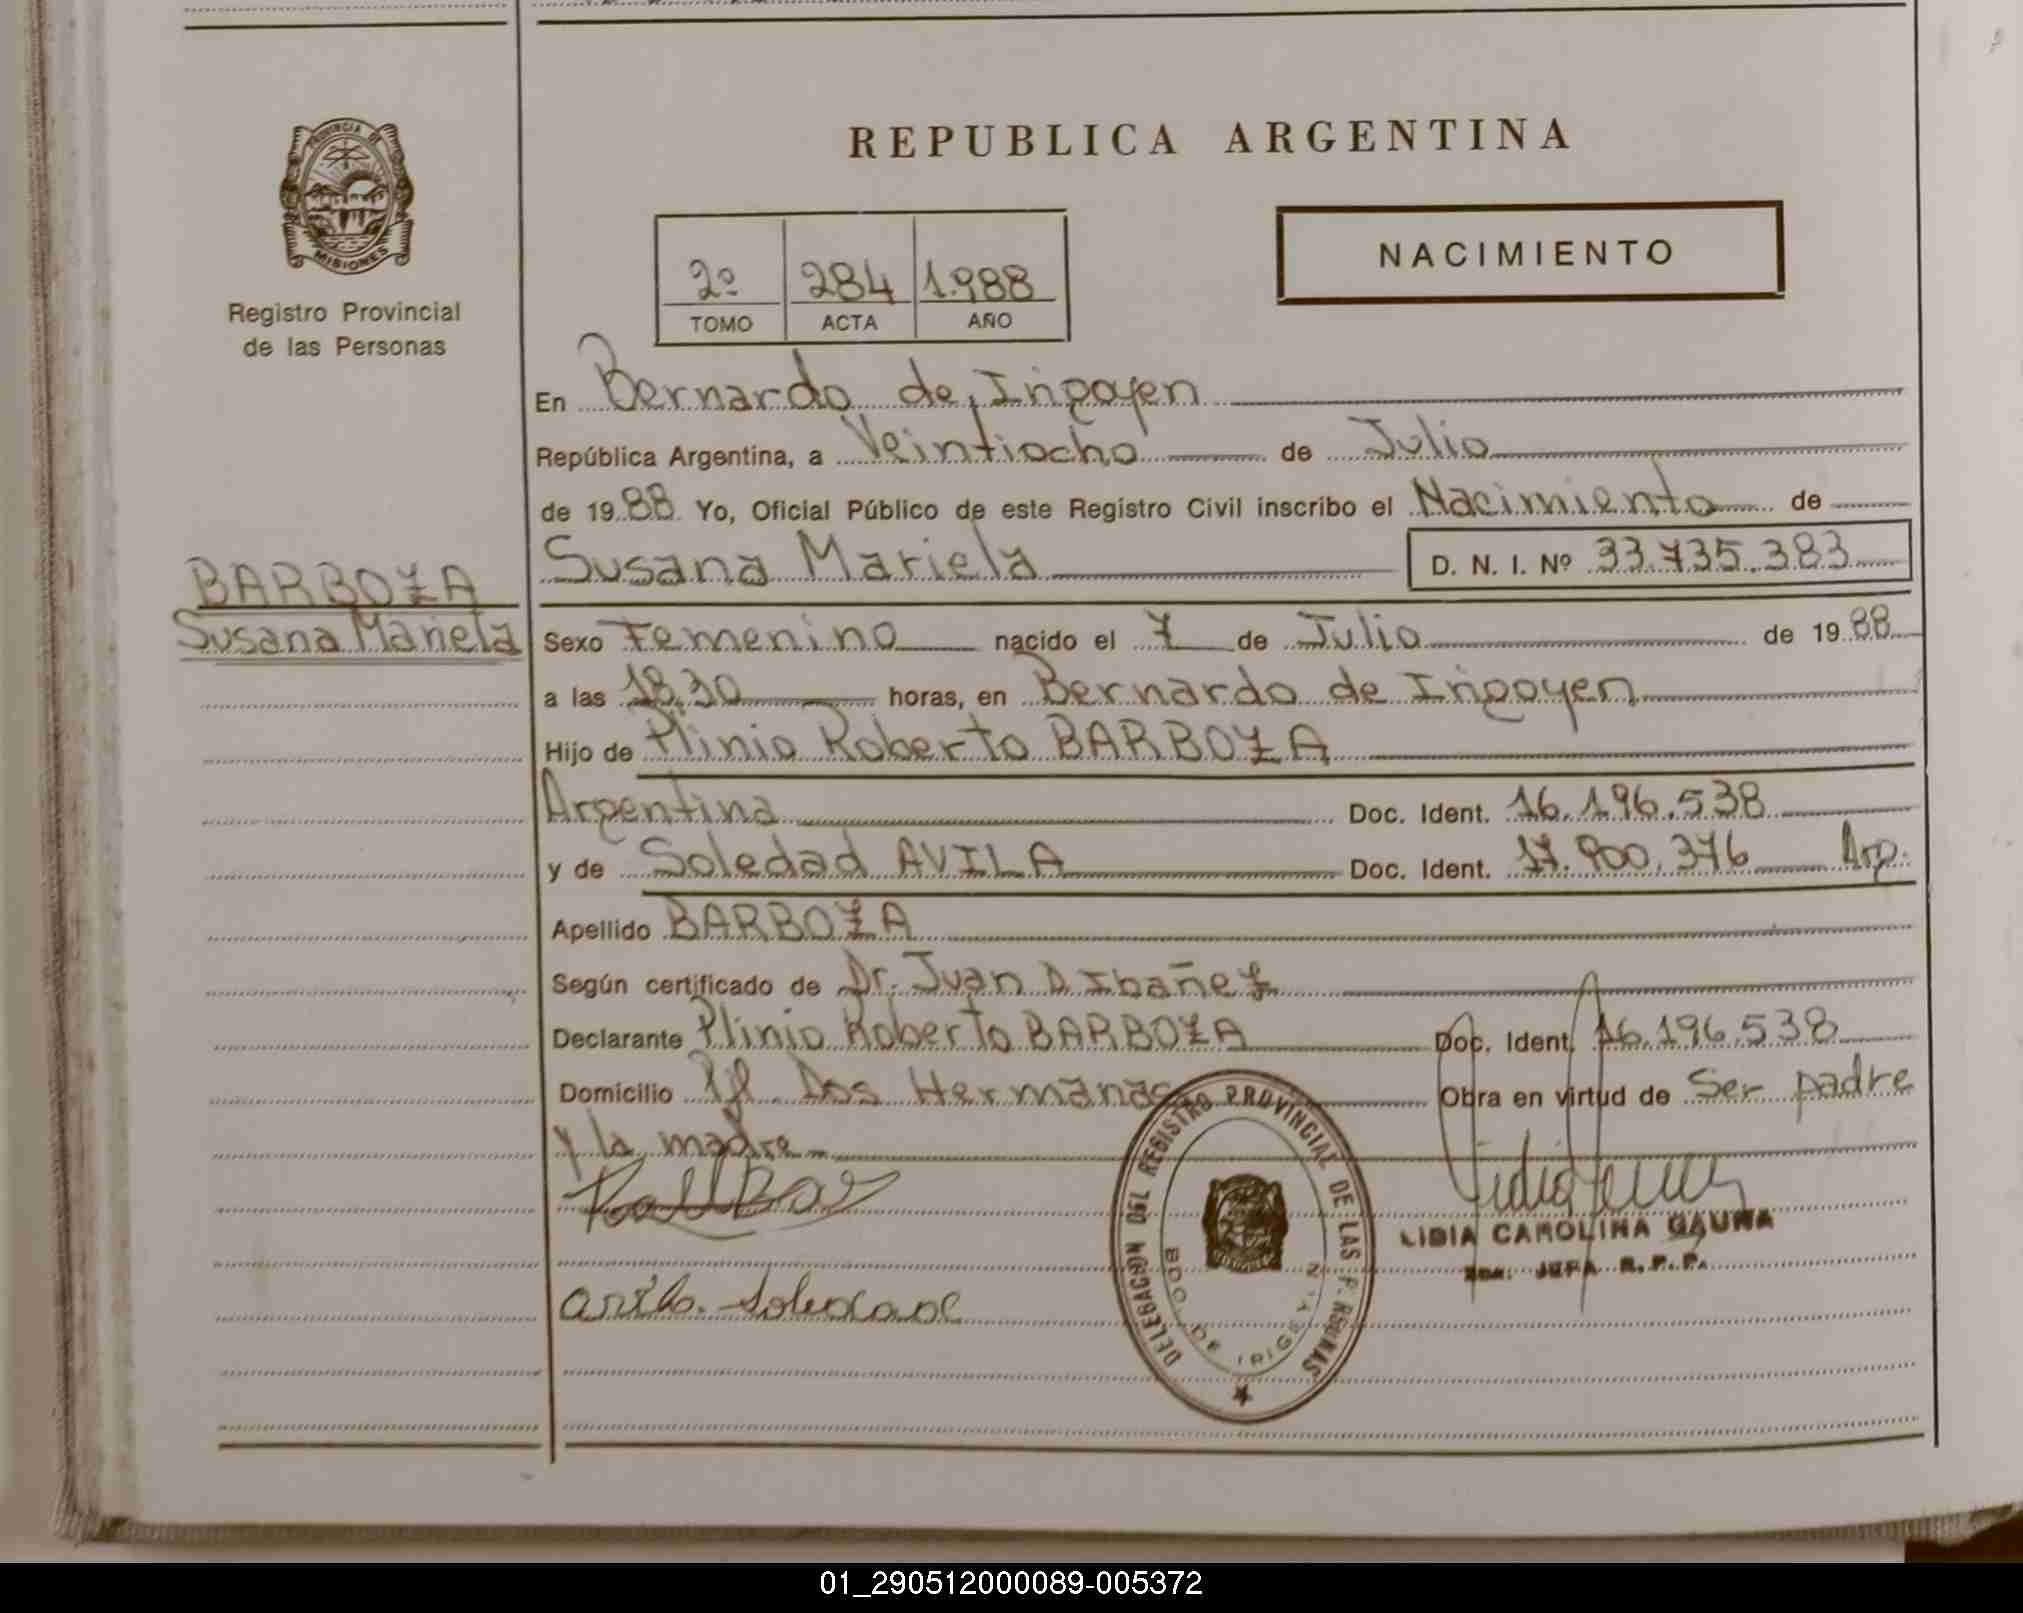 PROVINCIA DE
MISIONES
Registro Provincial
de las Personas
BARBOZA
Susana Mariela
REPUBLICA ARGENTINA
2º 284 1.988
TOMO ACTA AÑO
NACIMIENTO
En Bernardo de Irigoyen
República Argentina, a Veintiocho de Julio
de 1988 Yo, Oficial Público de este Registro Civil inscribo el Nacimiento de
Susana Mariela D. N. I. Nº 33.735.383
Sexo Femenino nacido el 7 de Julio de 1988
a las 18,30 horas, en Bernardo de Irigoyen
Hijo de Plinio Roberto BARBOZA
Argentina Doc. Ident. 16.196.538
y de Soledad AVILA Doc. Ident. 17.900.376 Arg.
Apellido BARBOZA
Según certificado de Dr. Juan D Ibañez
Declarante Plinio Roberto BARBOZA Doc. Ident. 16.196.538
Domicilio Pje. Dos Hermanas Obra en virtud de Ser padre
y la madre
DELEGACION DEL REGISTRO PROVINCIAL DE LAS PERSONAS
BDO. DE IRIGOYEN
LIDIA CAROLINA GAUNA
2da. JEFA R.P.P.
Soledad
01_290512000089-005372